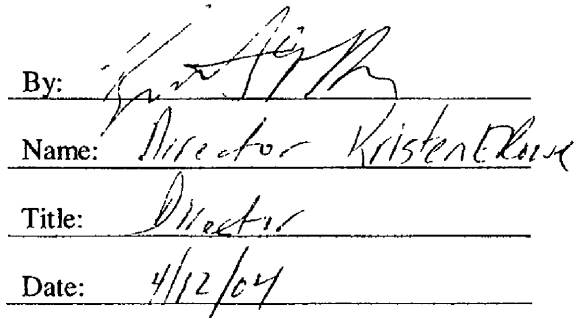 By:
Name: Director Kristen
Title: Director
Date: 4/12/04